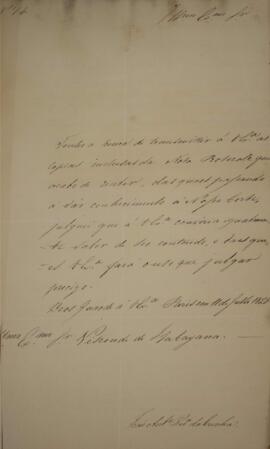 Nº 14
Illmo Exmo Sr
Tenho a honra de transmittir á V Exª as
copias inclusas da Nota
acabo de das quaes passando
a dar conhecimento á Nossa Corte,
julguei que á V Exª convinha igualmen-
te saber do seu contendo, e
V Exª fará o uso que julgar
precizo.
Deos Guarde á V Exª Paris em 11 de Julho
Illmo Exmo Sr Visconde de Itabayana.
da Cunha